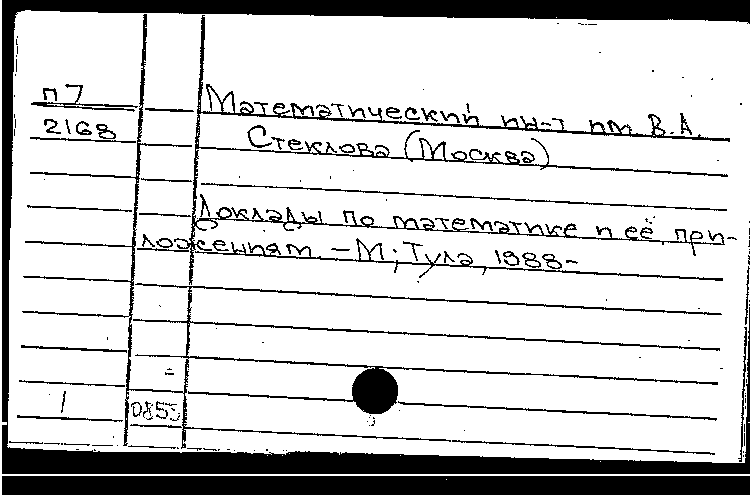 п7
2168
Математический ин-т им. В.А.
Стеклова (Москва)
Доклады по математике и её при-
ложениям. – М; Тула, 1988-
1
0855